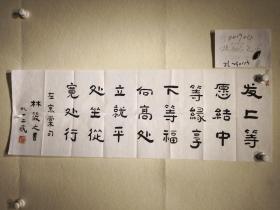 发上等
愿结中
等缘享
下等福
向高处
立就平
处坐從
宽处行
左宗棠句
林筱之書